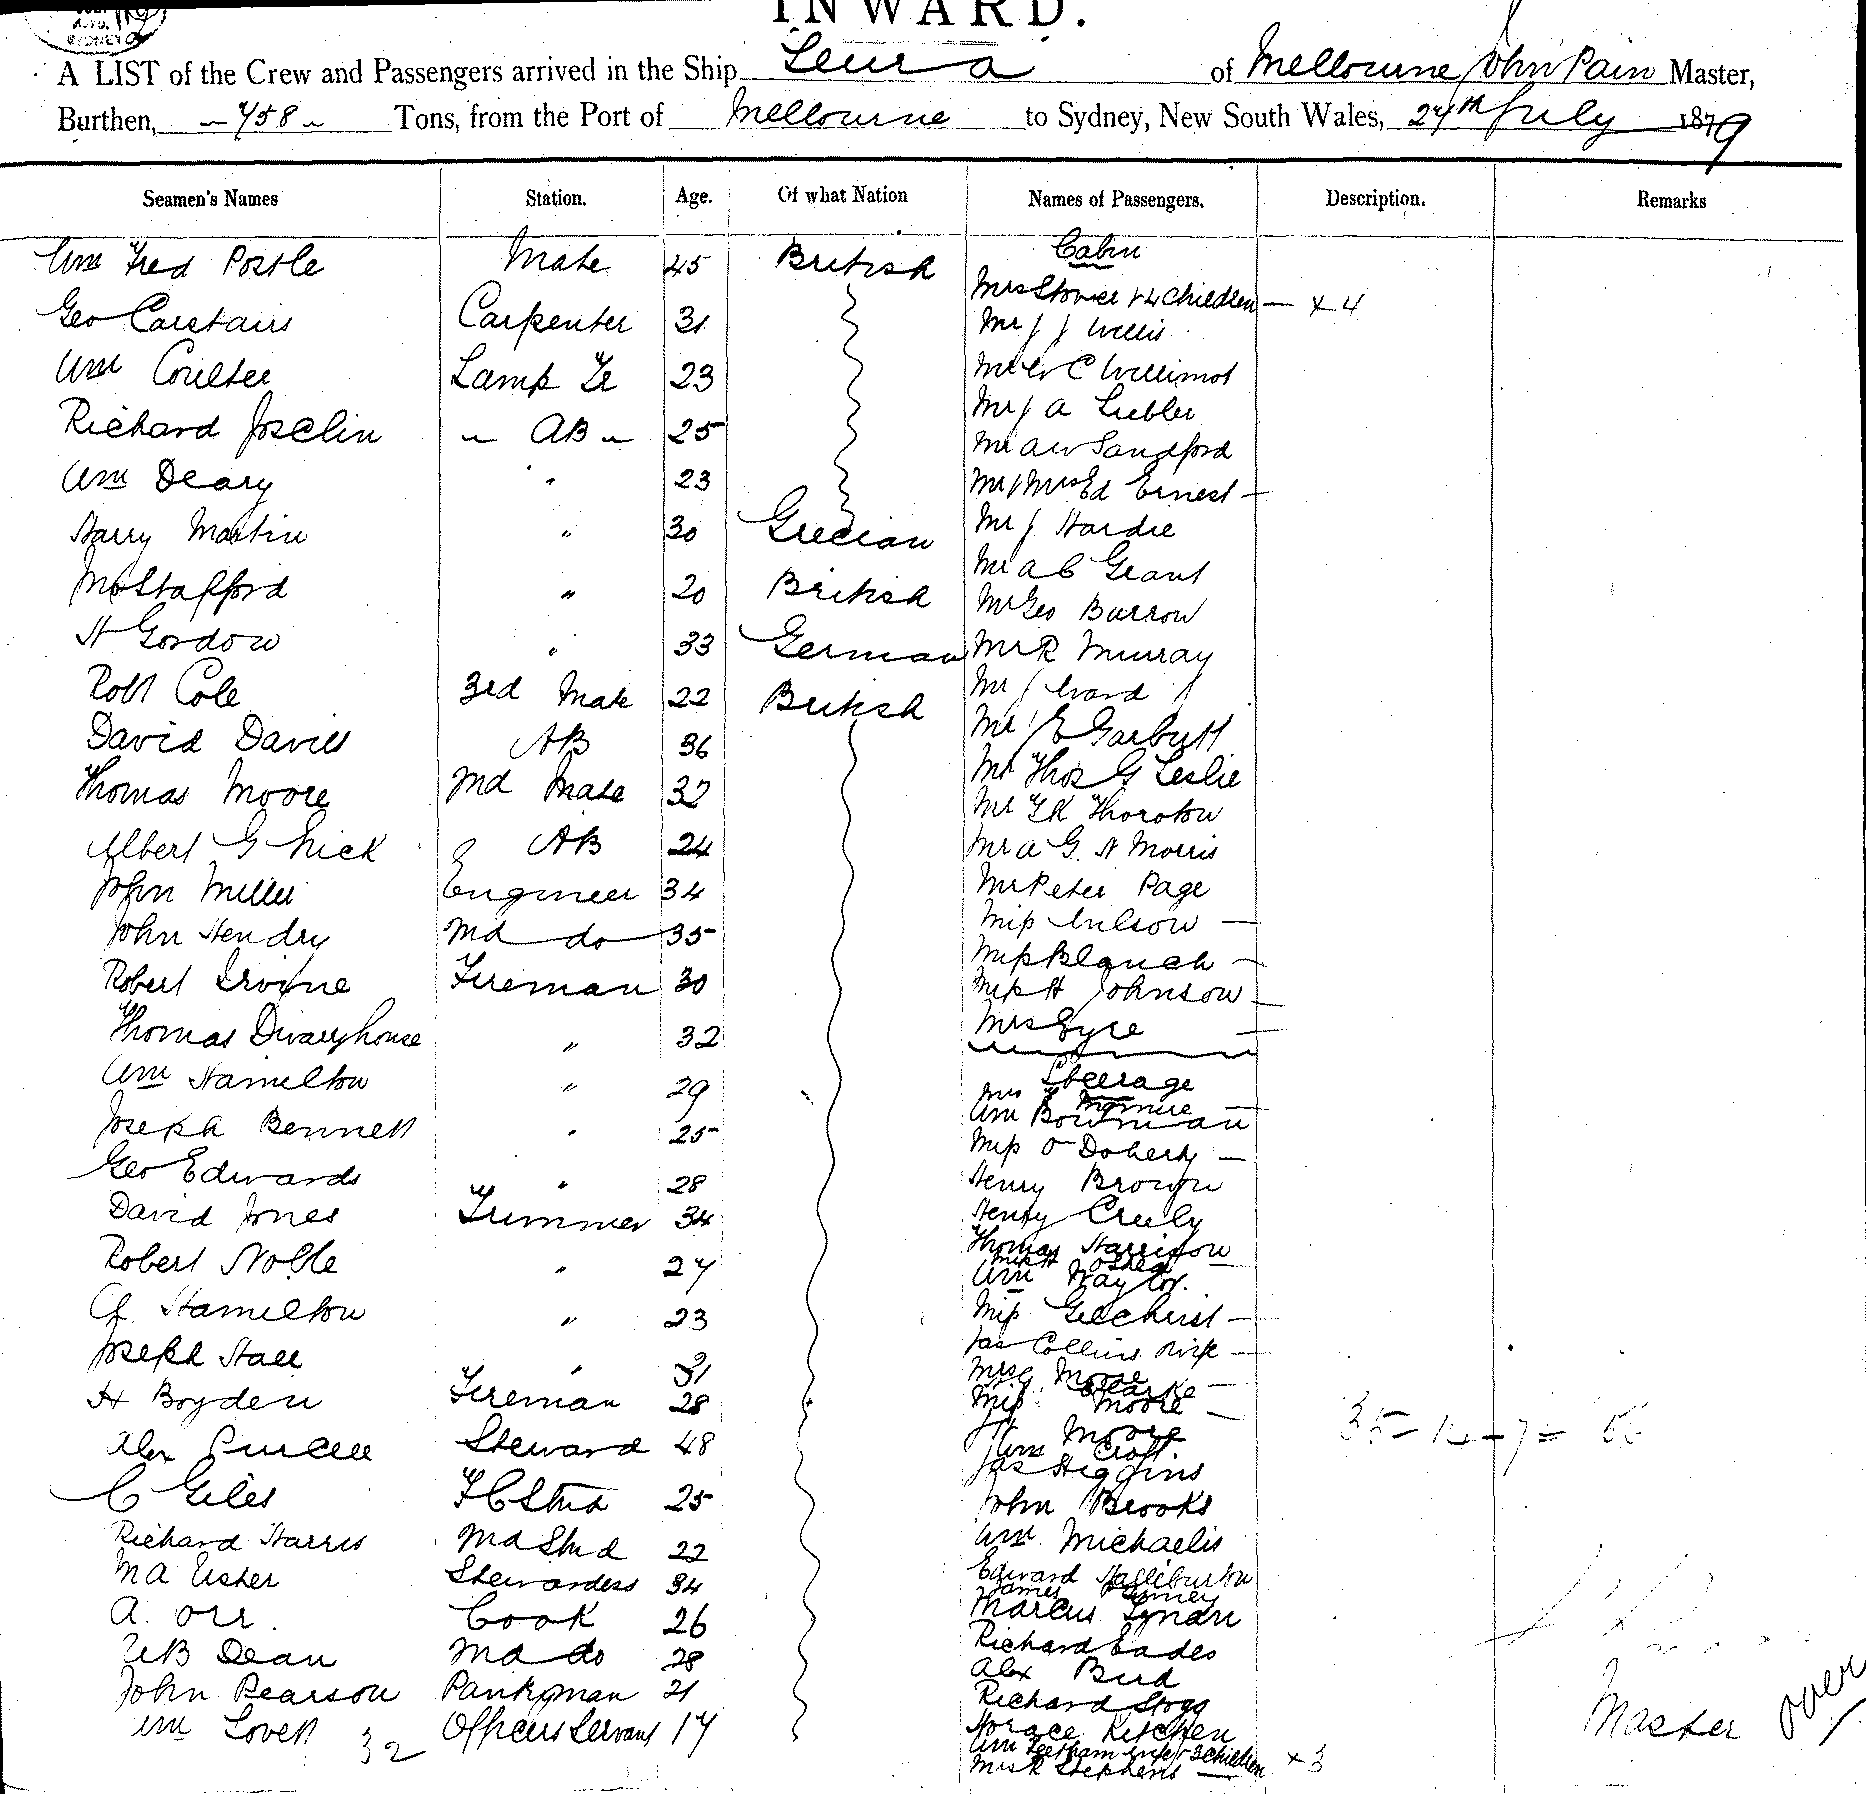 INWARD.
A LIST of the Crew and Passengers arrived in the Ship Leura of Melbourne John Pain Master,
Burthen, 458 Tons, from the Port of Melbourne to Sydney, New South Wales, 24th July 1879
Seamen's Names Station. Age. Of what Nation Names of Passengers. Description. Remarks
Wm Fred Postle Mate 45 British
Geo Carstairs Carpenter 31
Wm Coulter Lamp Tr 23
Richard Joselin AB 25
Wm Deary " 23
Harry Martin " 30 Grecian
Stafford " 20 British
H Gordon " 33 German
Robt Cole 3rd Mate 22 British
David Davies AB 36
Thomas Moore 2nd Mate 32
Albert G Nick AB 24
John Miller Engineer 34
John Hendry 2nd do 35
Robert Irvine Fireman 30
Thomas Divaryhouse " 32
Wm Hamilton " 29
Joseph Bennett " 25
Geo Edwards " 28
David Jones Trimmer 34
Robert Noble " 27
Hamilton " 23
Joseph Hall " 31
H Boyden Fireman 28
Alex Purcell Steward 48
C Giles F C Stwd 25
Richard Harris 2nd Stwd 22
M A Usher Stewardess 34
A. Orr Cook 26
B Dean 2nd do 28
John Pearson Pantryman 21
Wm Lovett Officers Servant 17
32
Cabin
Mrs Stower & 4 Children — x 4
Mr J J Willis
Mr C Willimot
Mr J A Liebler
Mr A W Sandford
Mr & Mrs Ed Ernest —
Mr J Hardie
Mr A C Grant
Mr Geo Burrow
Mr R Murray
Mr J Ward
Mr J E Garbutt
Mr Thos G Leslie
Mr T K Thoroton
Mr A G. H Morris
Mr Peter Page
Miss Wilson —
Miss Blanch —
Miss H Johnson —
Mrs Eyre —
Steerage
Mrs
Wm Bowman
Miss O Doherty —
Henry Brown
Henry Creely
Thomas Harrison
Miss H Oshea
Wm Naylor.
Miss Gilchrist —
Jas Collins wife —
Mrs Moore —
Clarke
Miss Moore —
Moore
Wm Croft
Jas Higgins
John Brooks
Wm Michaelis
Edward Halliburton
James
Marcus
Richard Eades
Alex Bird
Richard Stogg
Horace Kitchen
Wm Leetham wife & 3 Children x 3
Stephens —
35
Master
over